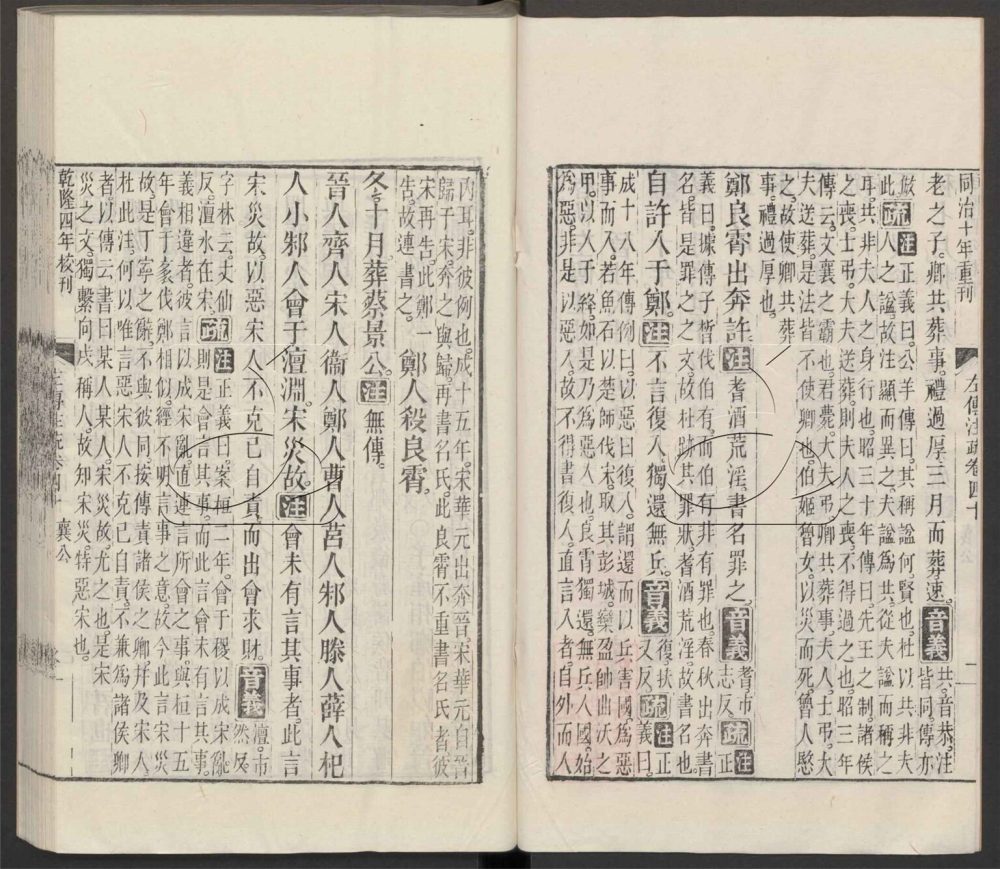 同治十年重刊
左傳注疏卷四十
老之子卿共葬事禮過厚三月而葬速音義共音恭注皆同傳亦
放此疏注正義曰公羊傳曰其稱謚何賢也杜以共非夫人之謚故注顯而異之夫謚爲共從夫謚而稱之
耳共非夫人之身行也昭三十年傳曰先王之制諸侯之喪士弔大夫送葬則夫人之喪不得過之也昭三年
傳云文襄之霸也君薨大夫弔卿共葬事夫人士弔大夫送葬是法皆不使卿也伯姬魯女以災而死魯人愍
之故使卿共葬事禮過厚也
鄭良霄出奔許注耆酒荒淫書名罪之音義耆市志反疏注正
義曰據傳子晳伐伯有而伯有非有罪也春秋出奔書名皆是罪之之文故杜跡其罪狀耆酒荒淫故書名也
自許入于鄭注不言復入獨還無兵音義復扶又反疏注正義曰
成十八年傳例曰以惡曰復入謂還而以兵害國爲惡事而入若魚石以楚師伐宋取其彭城欒盈帥曲沃之
甲以入于絳如是乃爲惡入也良霄獨還無兵入國始爲惡非是以惡入故不得書復入直言入者自外而入
內耳非彼例也成十五年宋華元出奔晉宋華元自晉歸于宋奔之與歸再書名氏此良霄不重書名氏者彼
宋再告此鄭一告故連書之鄭人殺良霄
冬十月葬蔡景公注無傳
晉人齊人宋人衞人鄭人曹人莒人邾人滕人薛人杞
人小邾人會于澶淵宋災故注會未有言其事者此言
宋災故以惡宋人不克己自責而出會求財音義澶市然反
字林云丈仙反澶水在宋疏注正義曰案桓二年會于稷以成宋亂則是會言其事而此言會未有言其事
義相違者彼言以成宋亂直連言所會之事與桓十五年會于袲伐鄭相似經不明言事之意故今此言宋災
故是丁寧之辭不與彼同按傳責諸侯之卿并及宋人杜此注何以唯言惡宋人不克己自責不兼爲諸侯卿
者以傳云書曰某人某人宋災故尤之也是宋災之文獨繫向戌稱人故知宋災特惡宋也
乾隆四年校刊
襄公